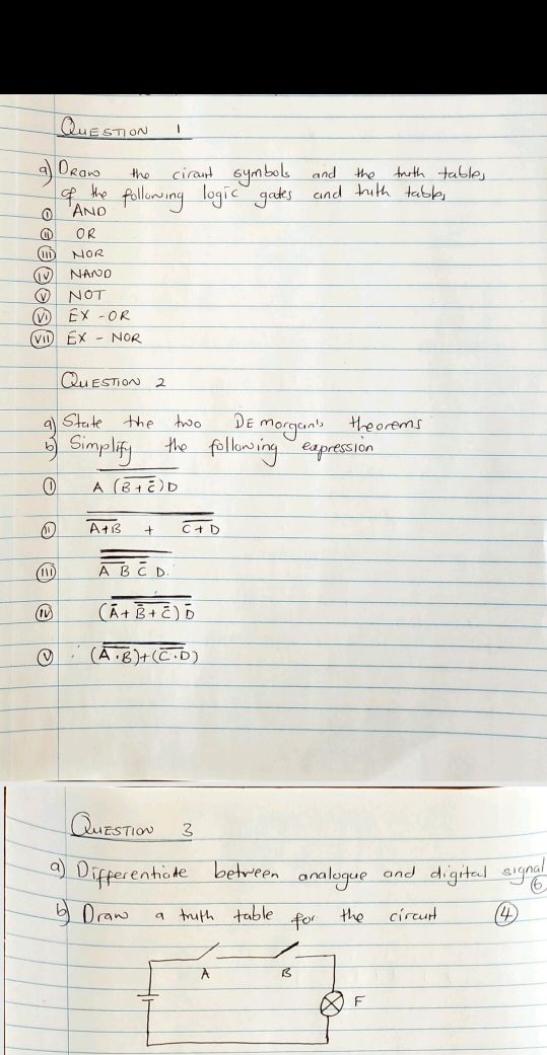 QUESTION 1
a) Draw the circuit symbols and the truth tables
of the following logic gates and truth tables
(i) AND
(ii) OR
(iii) NOR
(iv) NAND
(v) NOT
(vi) EX - OR
(vii) EX - NOR
QUESTION 2
a) State the two DE morgan's theorems
b) Simplify the following expression
(i) \overline{A (\overline{B + \bar{C}}) D}
(ii) \overline{\overline{A+B} + \overline{C+D}}
(iii) \overline{\overline{\overline{A B} \bar{C} D}}
(iv) \overline{(\bar{A} + \bar{B} + \bar{C}) \bar{D}}
(v) \overline{(\overline{A \cdot B}) + (\overline{C \cdot D})}
QUESTION 3
a) Differentiate between analogue and digital signal (6)
b) Draw a truth table for the circuit (4)
A B
F